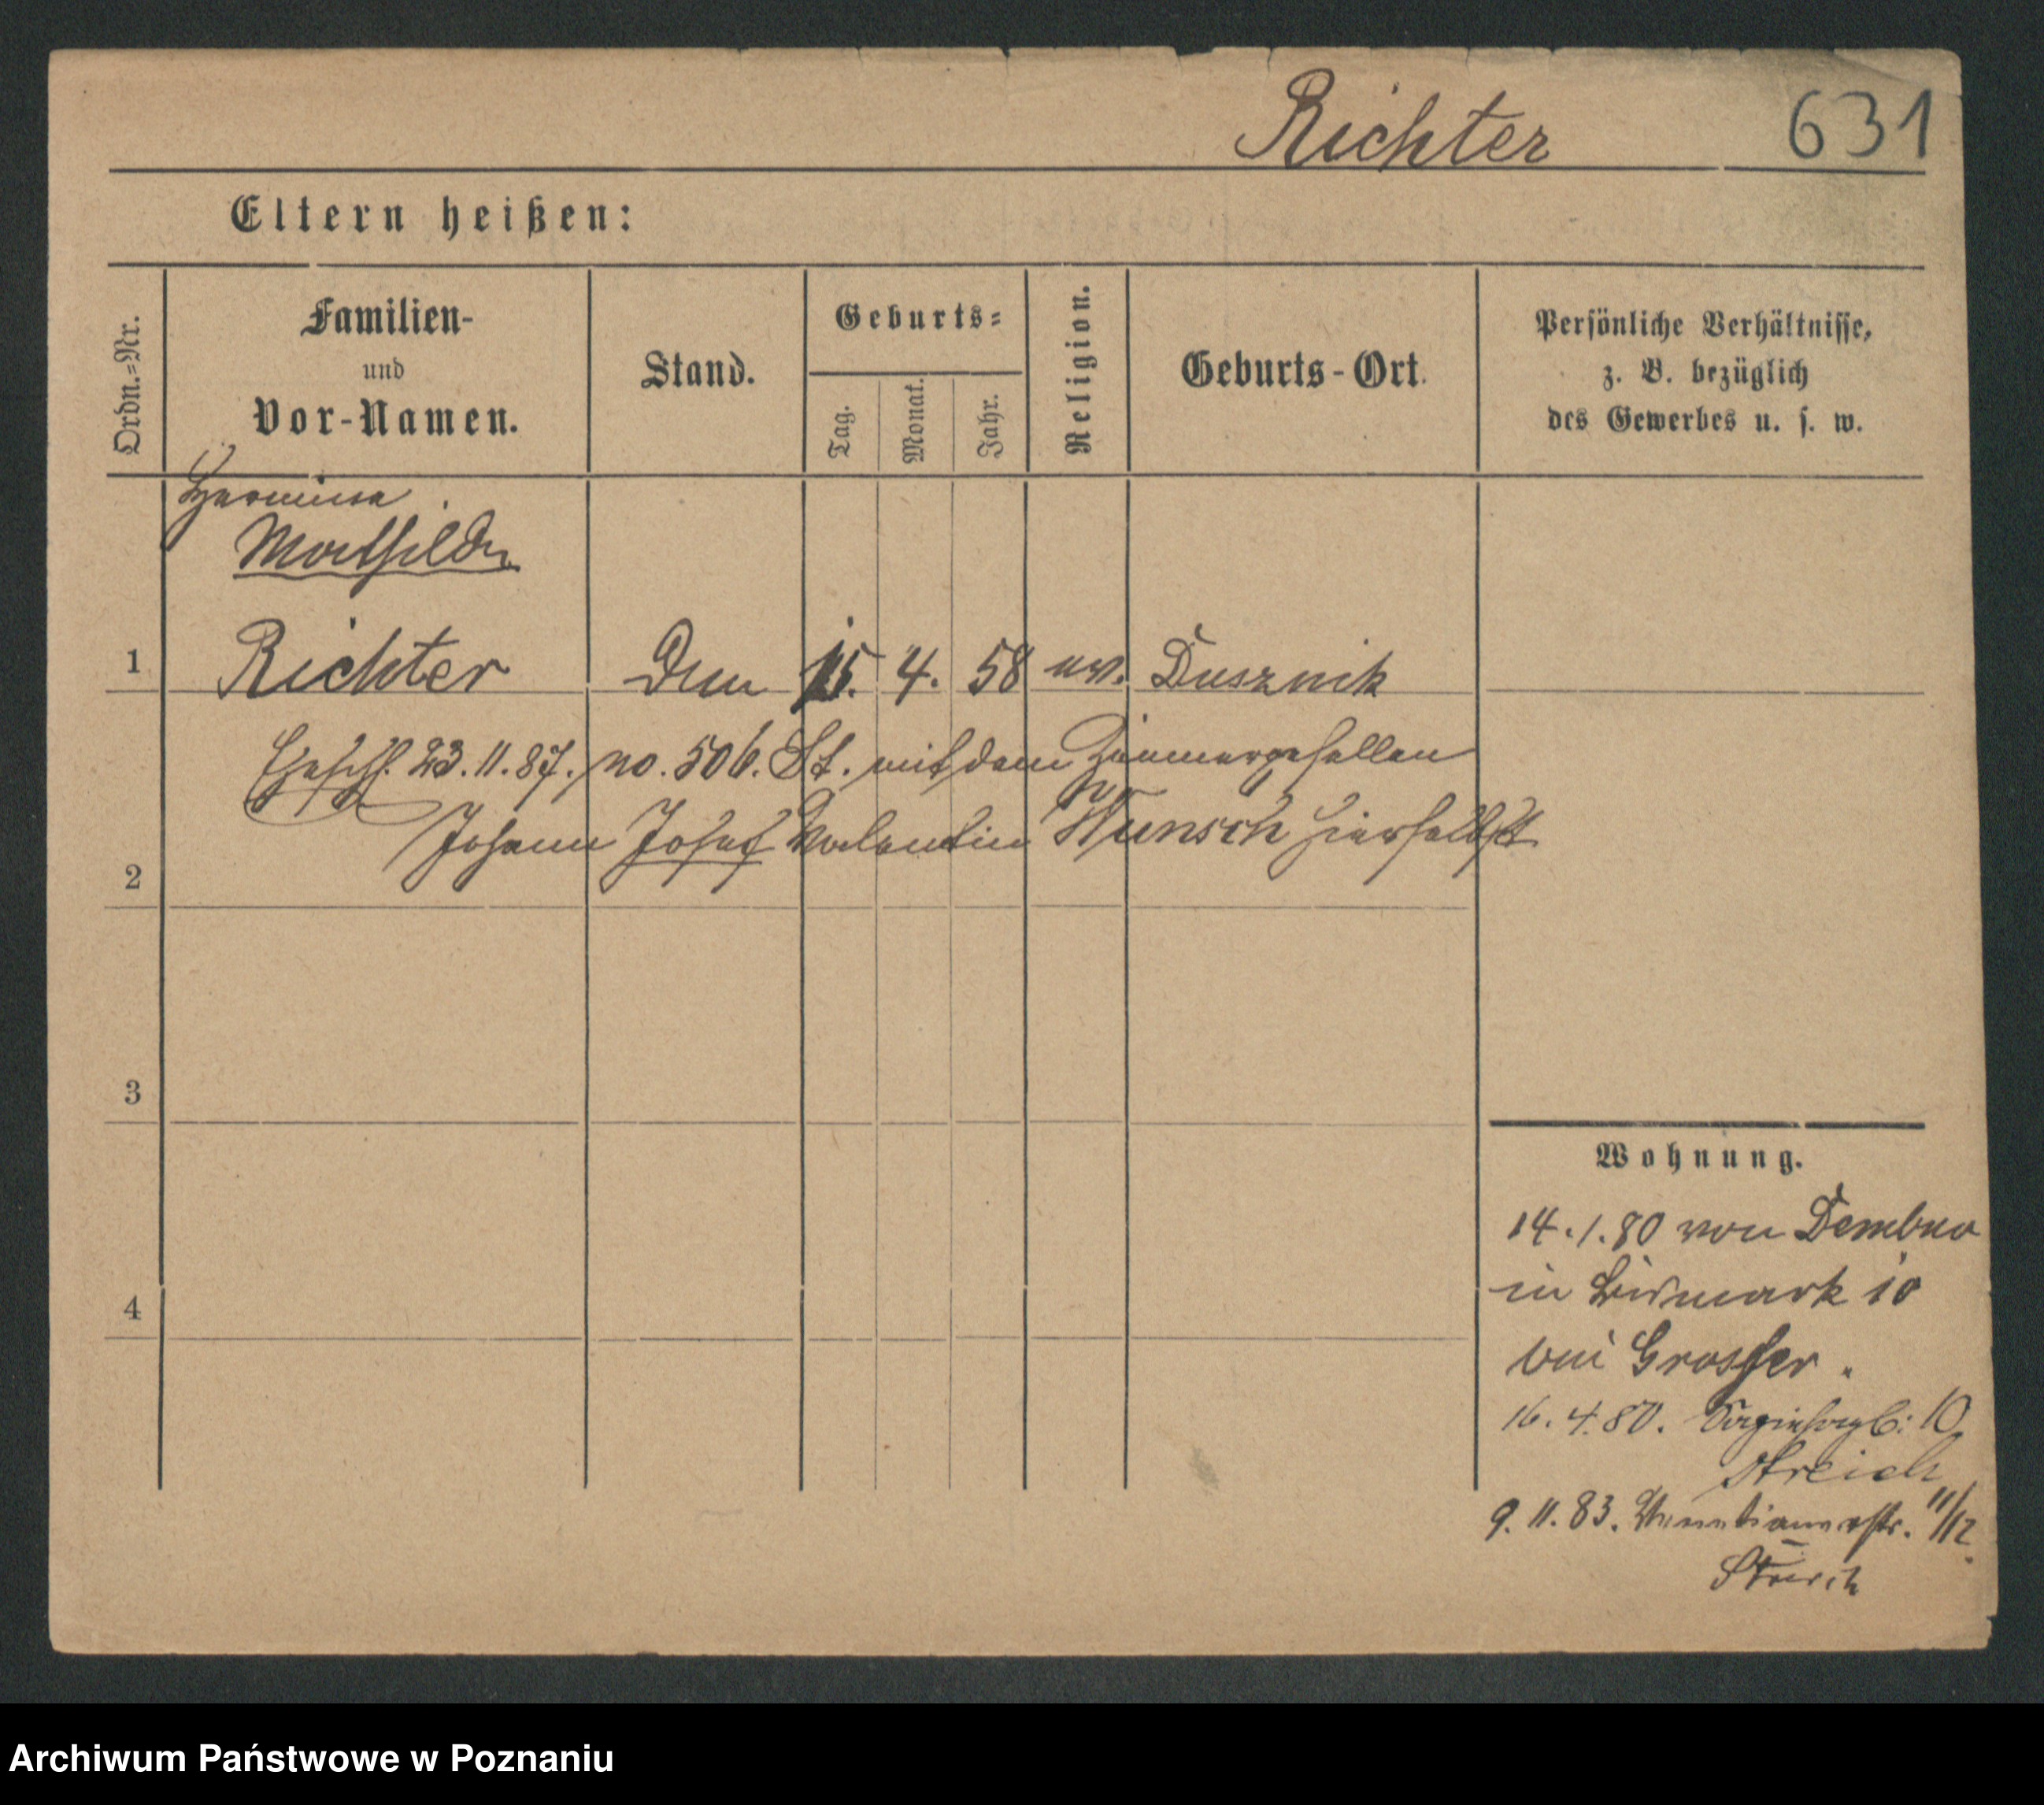 Richter 631
Eltern heißen:
Ordn.-Nr.
Familien-
und
Vor-Namen.
Stand.
Geburts-
Tag.
Monat.
Jahr.
Religion.
Geburts-Ort.
Persönliche Verhältnisse,
z. B. bezüglich
des Gewerbes u. s. w.
Hermine
Mathilde
1 Richter 15. 4. 58 ev. Dusznik
Eheschl. 23.11.87. no. 506. St. mit dem Zimmergesellen
Johann Josef Valentin Wunsch hierselbst
2
3
4
Wohnung.
14.1.80 von Dembno
in Bismark 10
bei Grosser.
16.4.80. 10
Streich
9.11.83. Venetianerstr. 11/12.